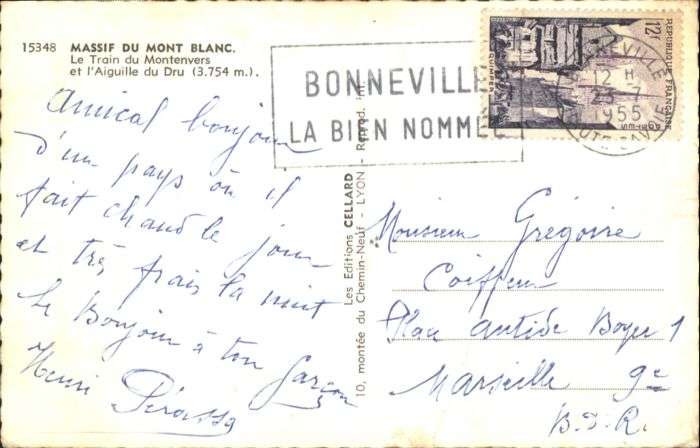 15348 MASSIF DU MONT BLANC.
Le Train du Montenvers
et l'Aiguille du Dru (3.754 m.).
Amical bonjour
d'un pays où il
fait chaud le jour
et très frais la nuit
Le Bonjour à ton garçon
Henri
Les Editions CELLARD
10, montée du Chemin-Neuf - LYON - Reprod. int
BONNEVILLE
LA BIEN NOMMÉE
12F
REPUBLIQUE FRANÇAISE
QUIMPER
POSTES
BONNEVILLE
12 H
23-7
1955
HTE SAVOIE
Monsieur Grégoire
Coiffeur
Place Antide Boyer 1
Marseille 9e
B.D.R.